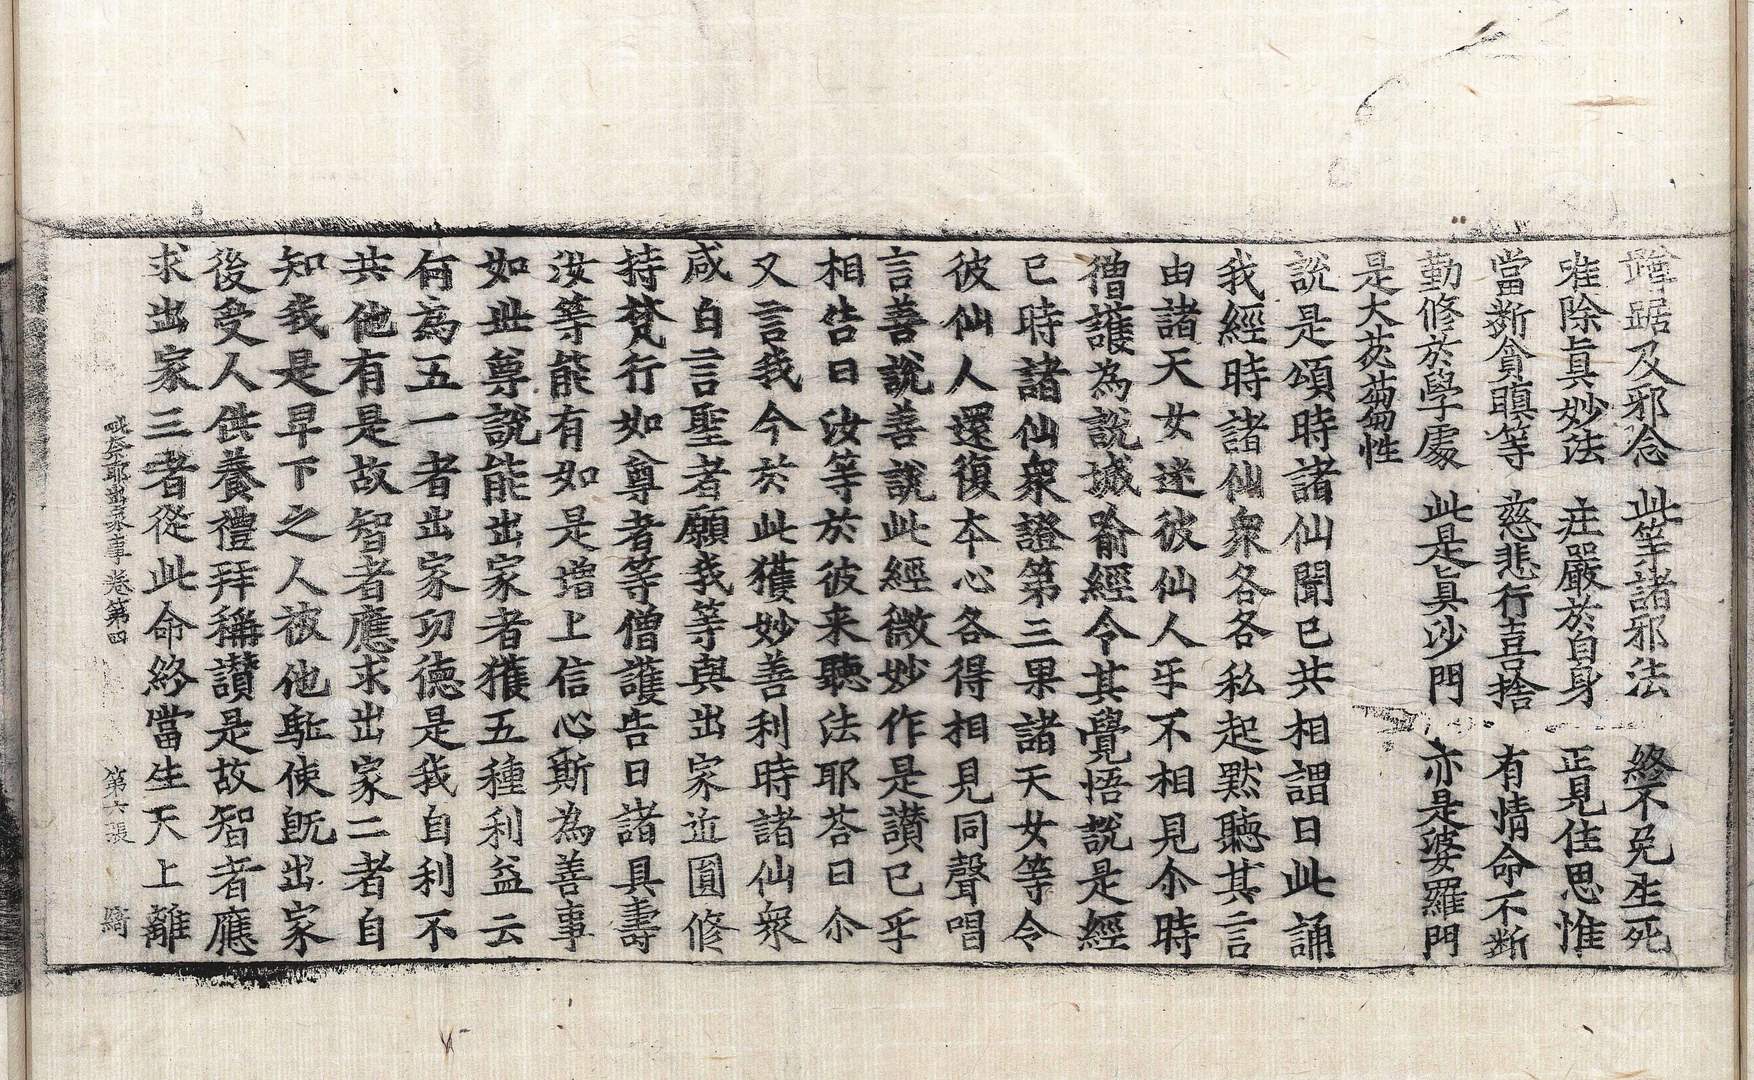 蹲踞及邪念　此等諸邪法　終不免生死
唯除眞妙法　莊嚴於自身　正見住思惟
當斷貪瞋等　慈悲行喜捨　有情命不斷
勤修於學處　此是眞沙門　亦是婆羅門
是大苾蒭性
說是頌時諸仙聞已共相謂曰此誦
我經時諸仙衆各各私起默聽其言
由諸天女迷彼仙人乎不相見尒時
僧護為說城喻經令其覺悟說是經
已時諸仙衆證第三果諸天女等令
彼仙人還復本心各得相見同聲唱
言善說善說此經微妙作是讃已乎
相告曰汝等於彼来聽法耶荅曰尒
又言我今於此獲妙善利時諸仙衆
咸白言聖者願我等與出家近圓修
持梵行如尊者等僧護告曰諸具壽
汝等能有如是增上信心斯為善事
如世尊說能出家者獲五種利益云
何為五一者出家功德是我自利不
共他有是故智者應求出家二者自
知我是早下之人被他駈使旣出家
後受人供養禮拜稱讃是故智者應
求出家三者從此命終當生天上離
毗奈耶出家事卷第四　第六張　綺